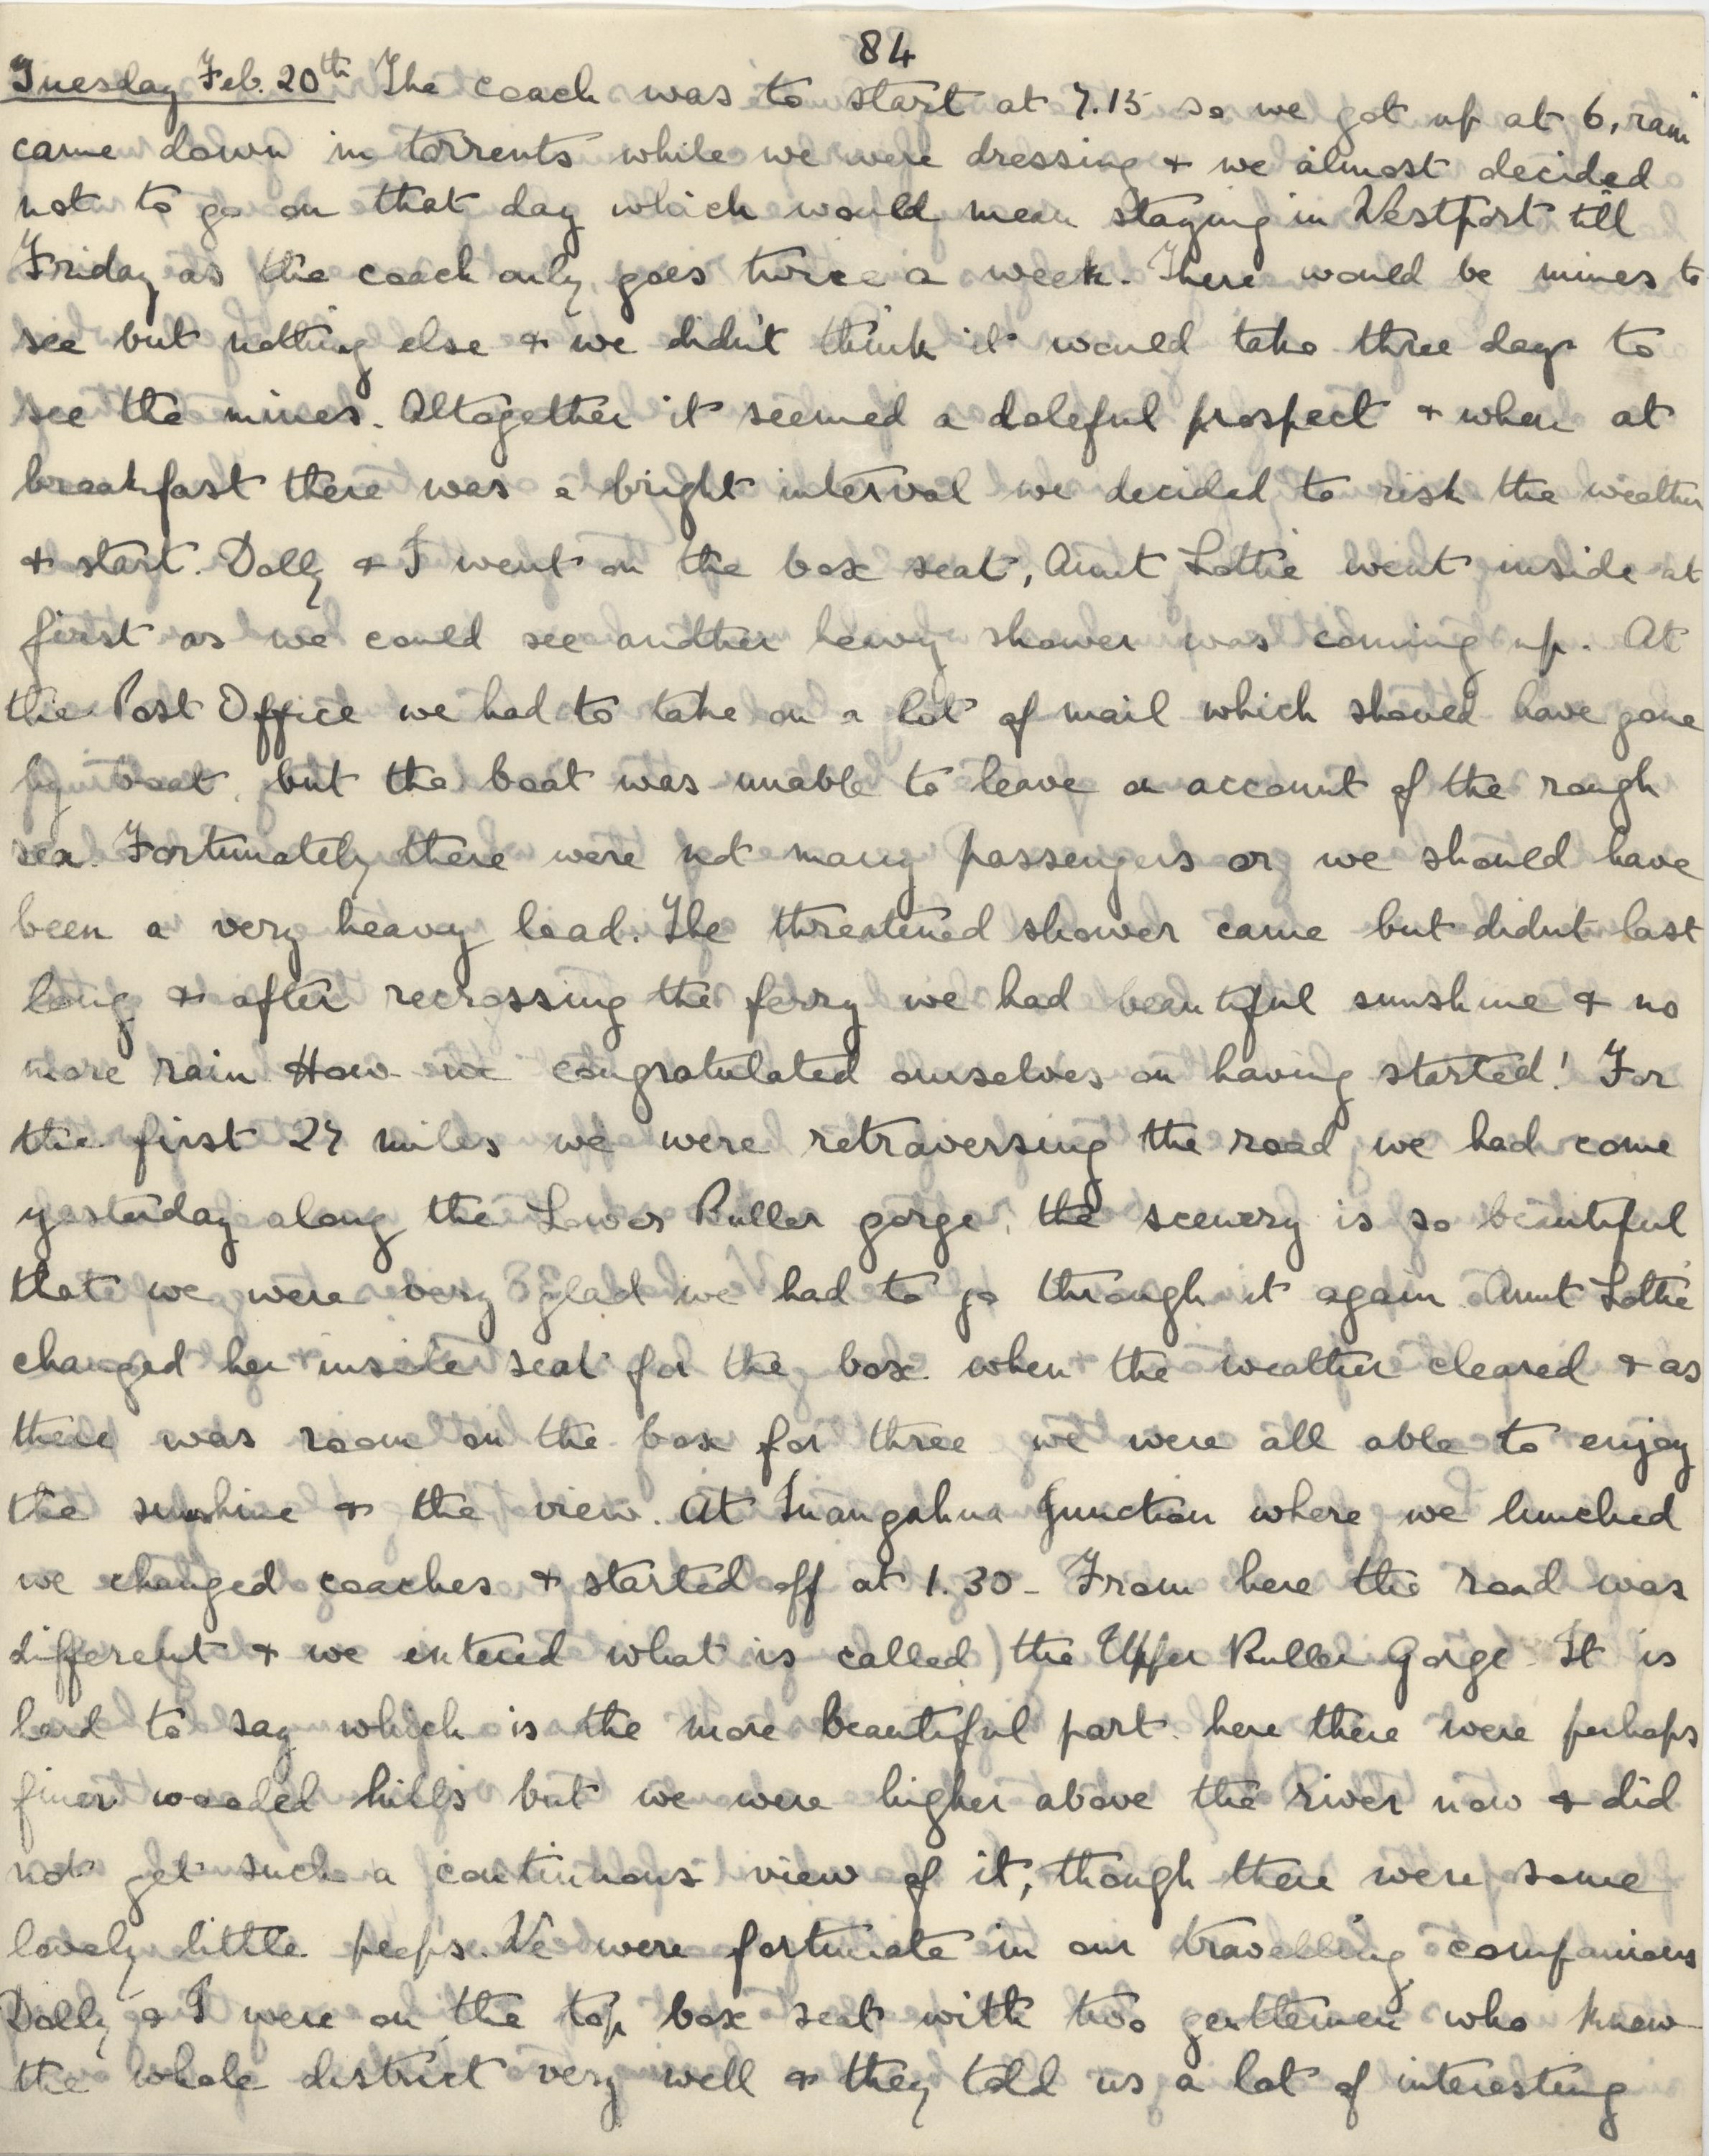 84
Tuesday Feb. 20th The coach was to start at 7.15 so we got up at 6, rain
came down in torrents while we were dressing & we almost decided
not to go on that day which would mean staying in Westport till
Friday as the coach only goes twice a week. There would be mines to
see but nothing else & we didn't think it would take three days to
see the mines. Altogether it seemed a doleful prospect & when at
breakfast there was a bright interval we decided to risk the weather
& start. Dolly & I went on the box seat, Aunt Lottie went inside at
first as we could see another heavy shower was coming up. At
the Post Office we had to take on a lot of mail which should have gone
by boat, but the boat was unable to leave on account of the rough
sea. Fortunately there were not many passengers or we should have
been a very heavy load. The threatened shower came but didnt last
long & after recrossing the ferry we had beautiful sunshine & no
more rain How we congratulated ourselves on having started! For
the first 27 miles we were retraversing the road we had come
yesterday along the Lower Buller gorge, the scenery is so beautiful
that we were very glad we had to go through it again. Aunt Lottie
changed her inside seat for the box when the weather cleared & as
there was room on the box for three we were all able to enjoy
the sunshine & the view. At Inangahua Junction where we lunched
we changed coaches & started off at 1.30 - From here the road was
different & we entered what is called) the Upper Buller Gorge. It is
hard to say which is the more beautiful part. here there were perhaps
finer wooded hills but we were higher above the river now & did
not get such a continuous view of it, though there were some
lovely little peeps. We were fortunate in our travelling companions
Dolly & I were on the top box seat with two gentlemen who knew
the whole district very well & they told us a lot of interesting